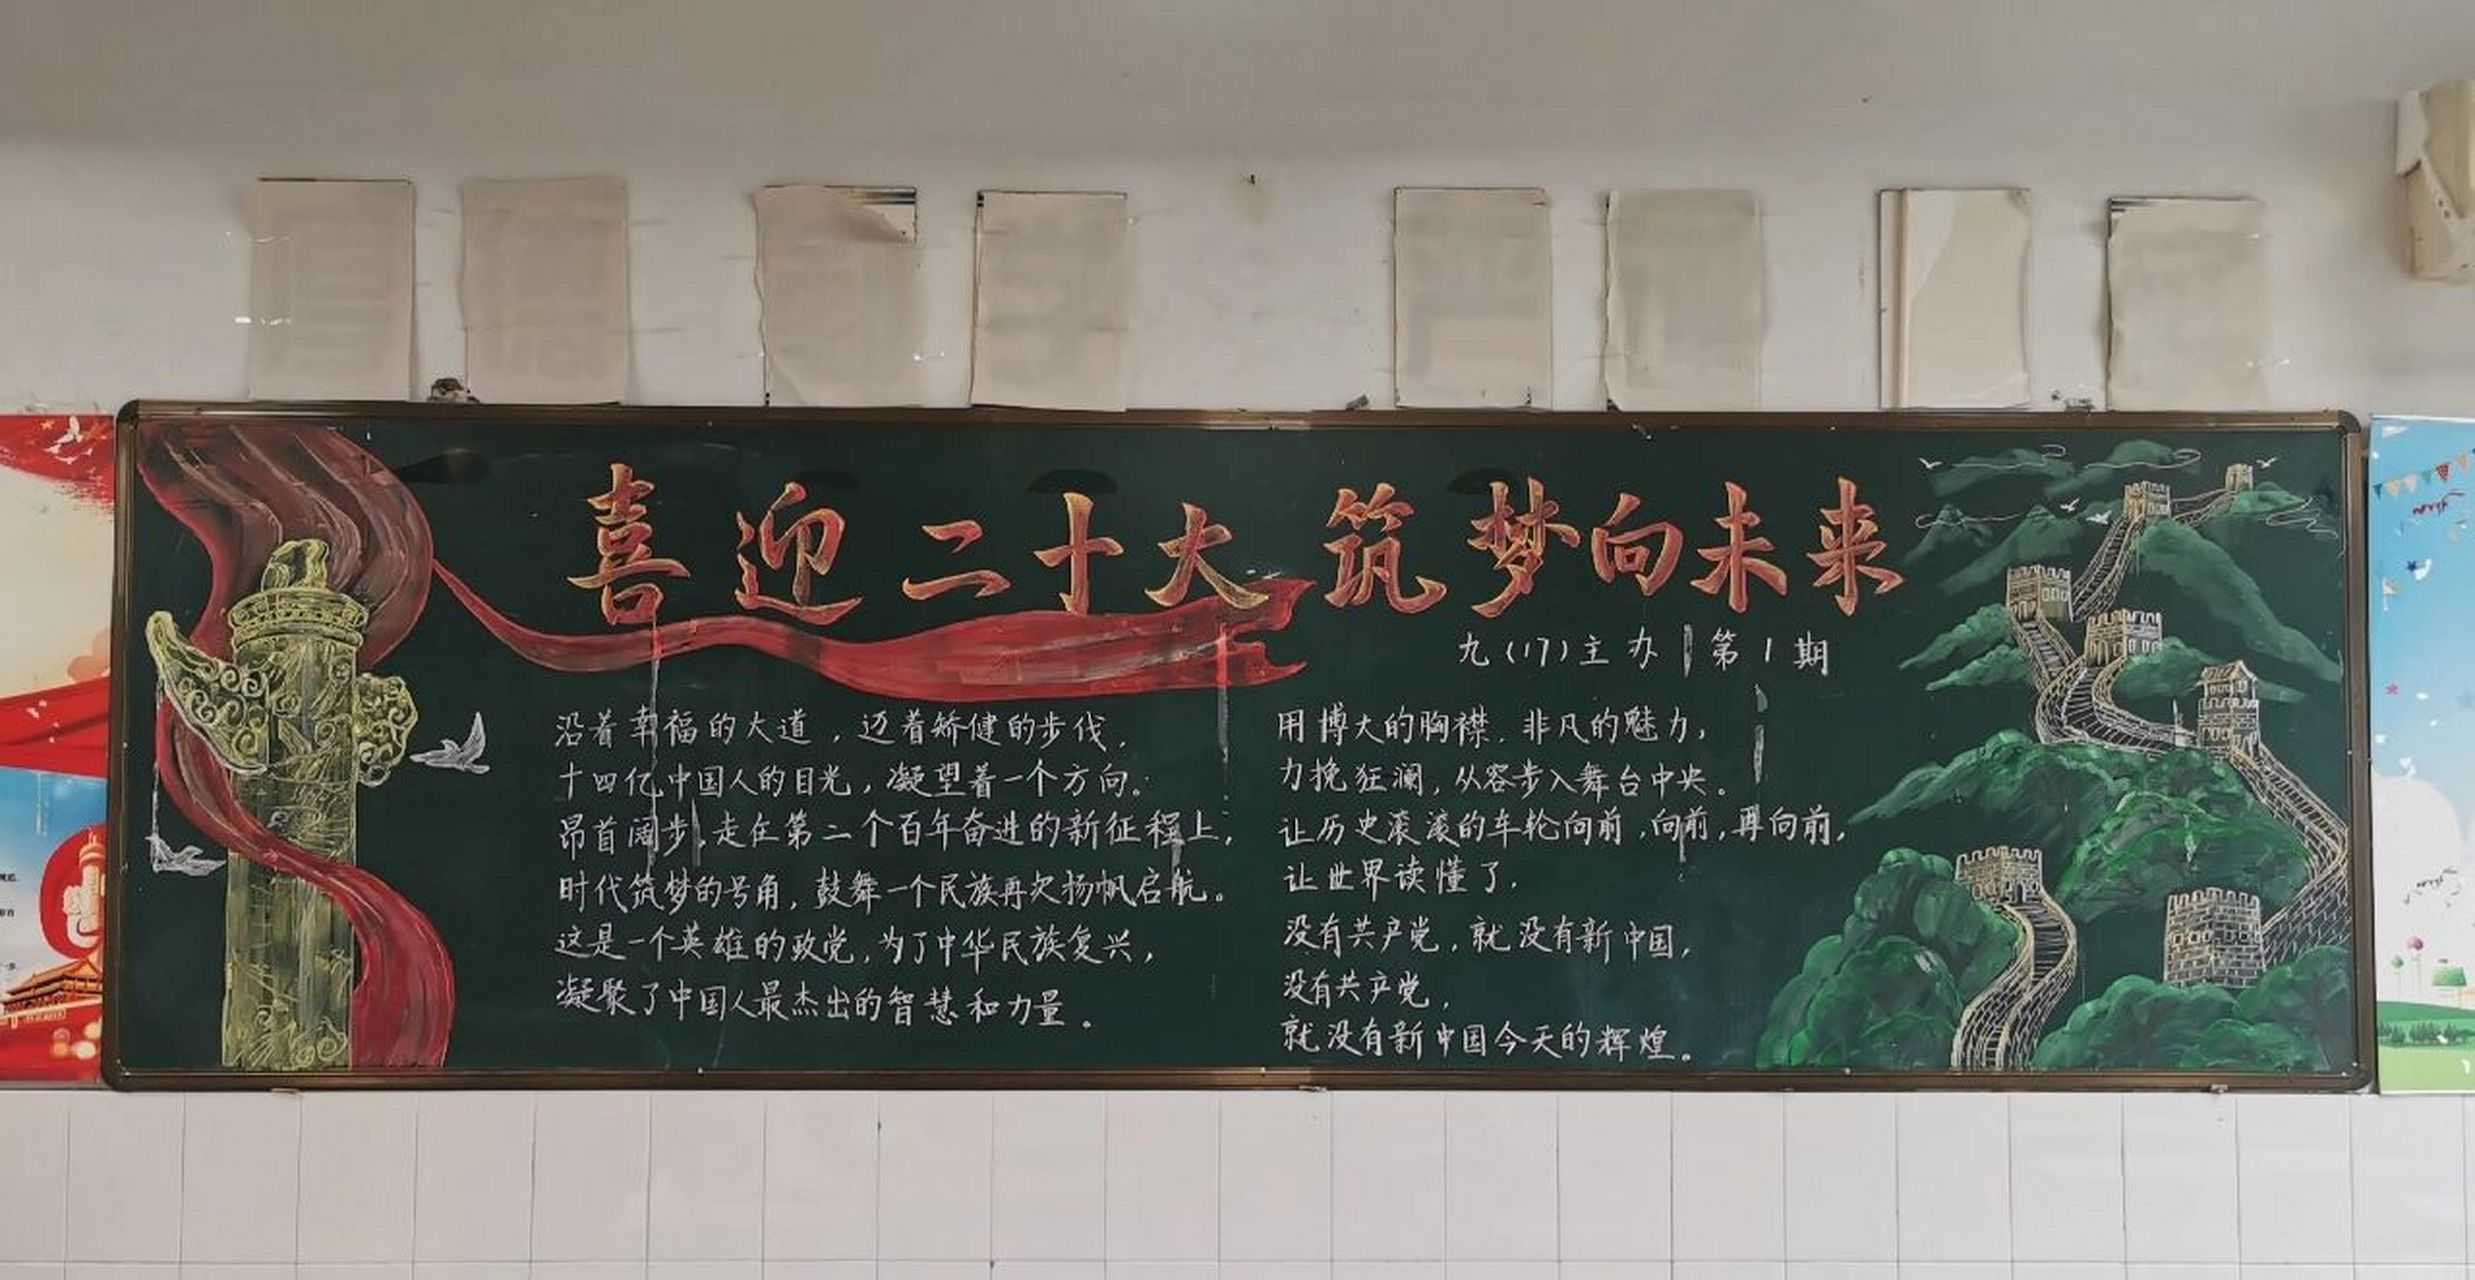 喜迎二十大 筑梦向未来
九(17)主办 | 第1期
沿着幸福的大道,迈着矫健的步伐,
十四亿中国人的目光,凝望着一个方向。
昂首阔步,走在第二个百年奋进的新征程上,
时代筑梦的号角,鼓舞一个民族再次扬帆启航。
这是一个英雄的政党,为了中华民族复兴,
凝聚了中国人最杰出的智慧和力量。
用博大的胸襟,非凡的魅力,
力挽狂澜,从容步入舞台中央。
让历史滚滚的车轮向前,向前,再向前,
让世界读懂了,
没有共产党,就没有新中国,
没有共产党,
就没有新中国今天的辉煌。